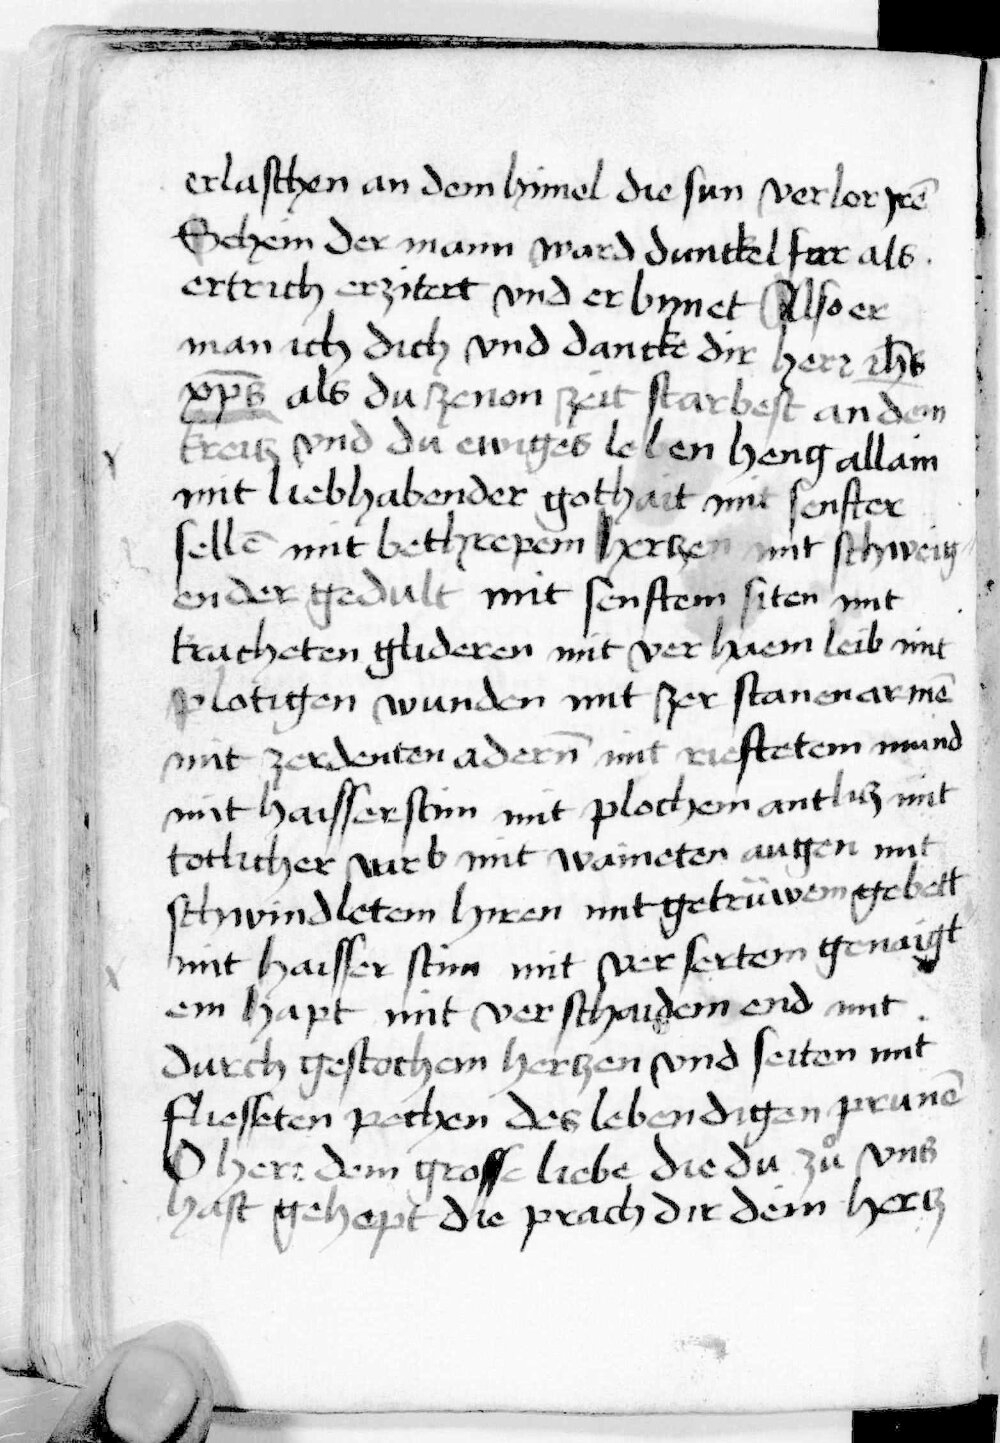 erlaschen an dem himel die sun verlor jrē
Schein der mann ward dunckel fur als
ertrich erzitert vnd erbimet Also er
man ich dich vnd dancke dir herr ihs
xps als du zenon zeit starbest an dem
kreitz vnd du ewiges leben heng allain
mit liebhabender gothait mit senfter
sellē mit bethrepem hertzen mit schweig
ender gedult mit senftem siten mit
kracheten glideren mit verhaem leib mit
plotigen wunden mit zer stanen armē
mit zerdenten adern̄ mit rieftetem mund
mit haisser stim mit plochem antlitz mit
totlicher varb mit waineten augen mit
schwindletem hiren mit getrüwem gebett
mit haisser stim mit versertem genaigt
em hapt mit verschaidem end mit
durch gestochem hertzen vnd seiten mit
fliesseten pechen des lebendigen prunē
O herr dem grosse liebe die du zů vns
hast gehept die prach dir dein hertz